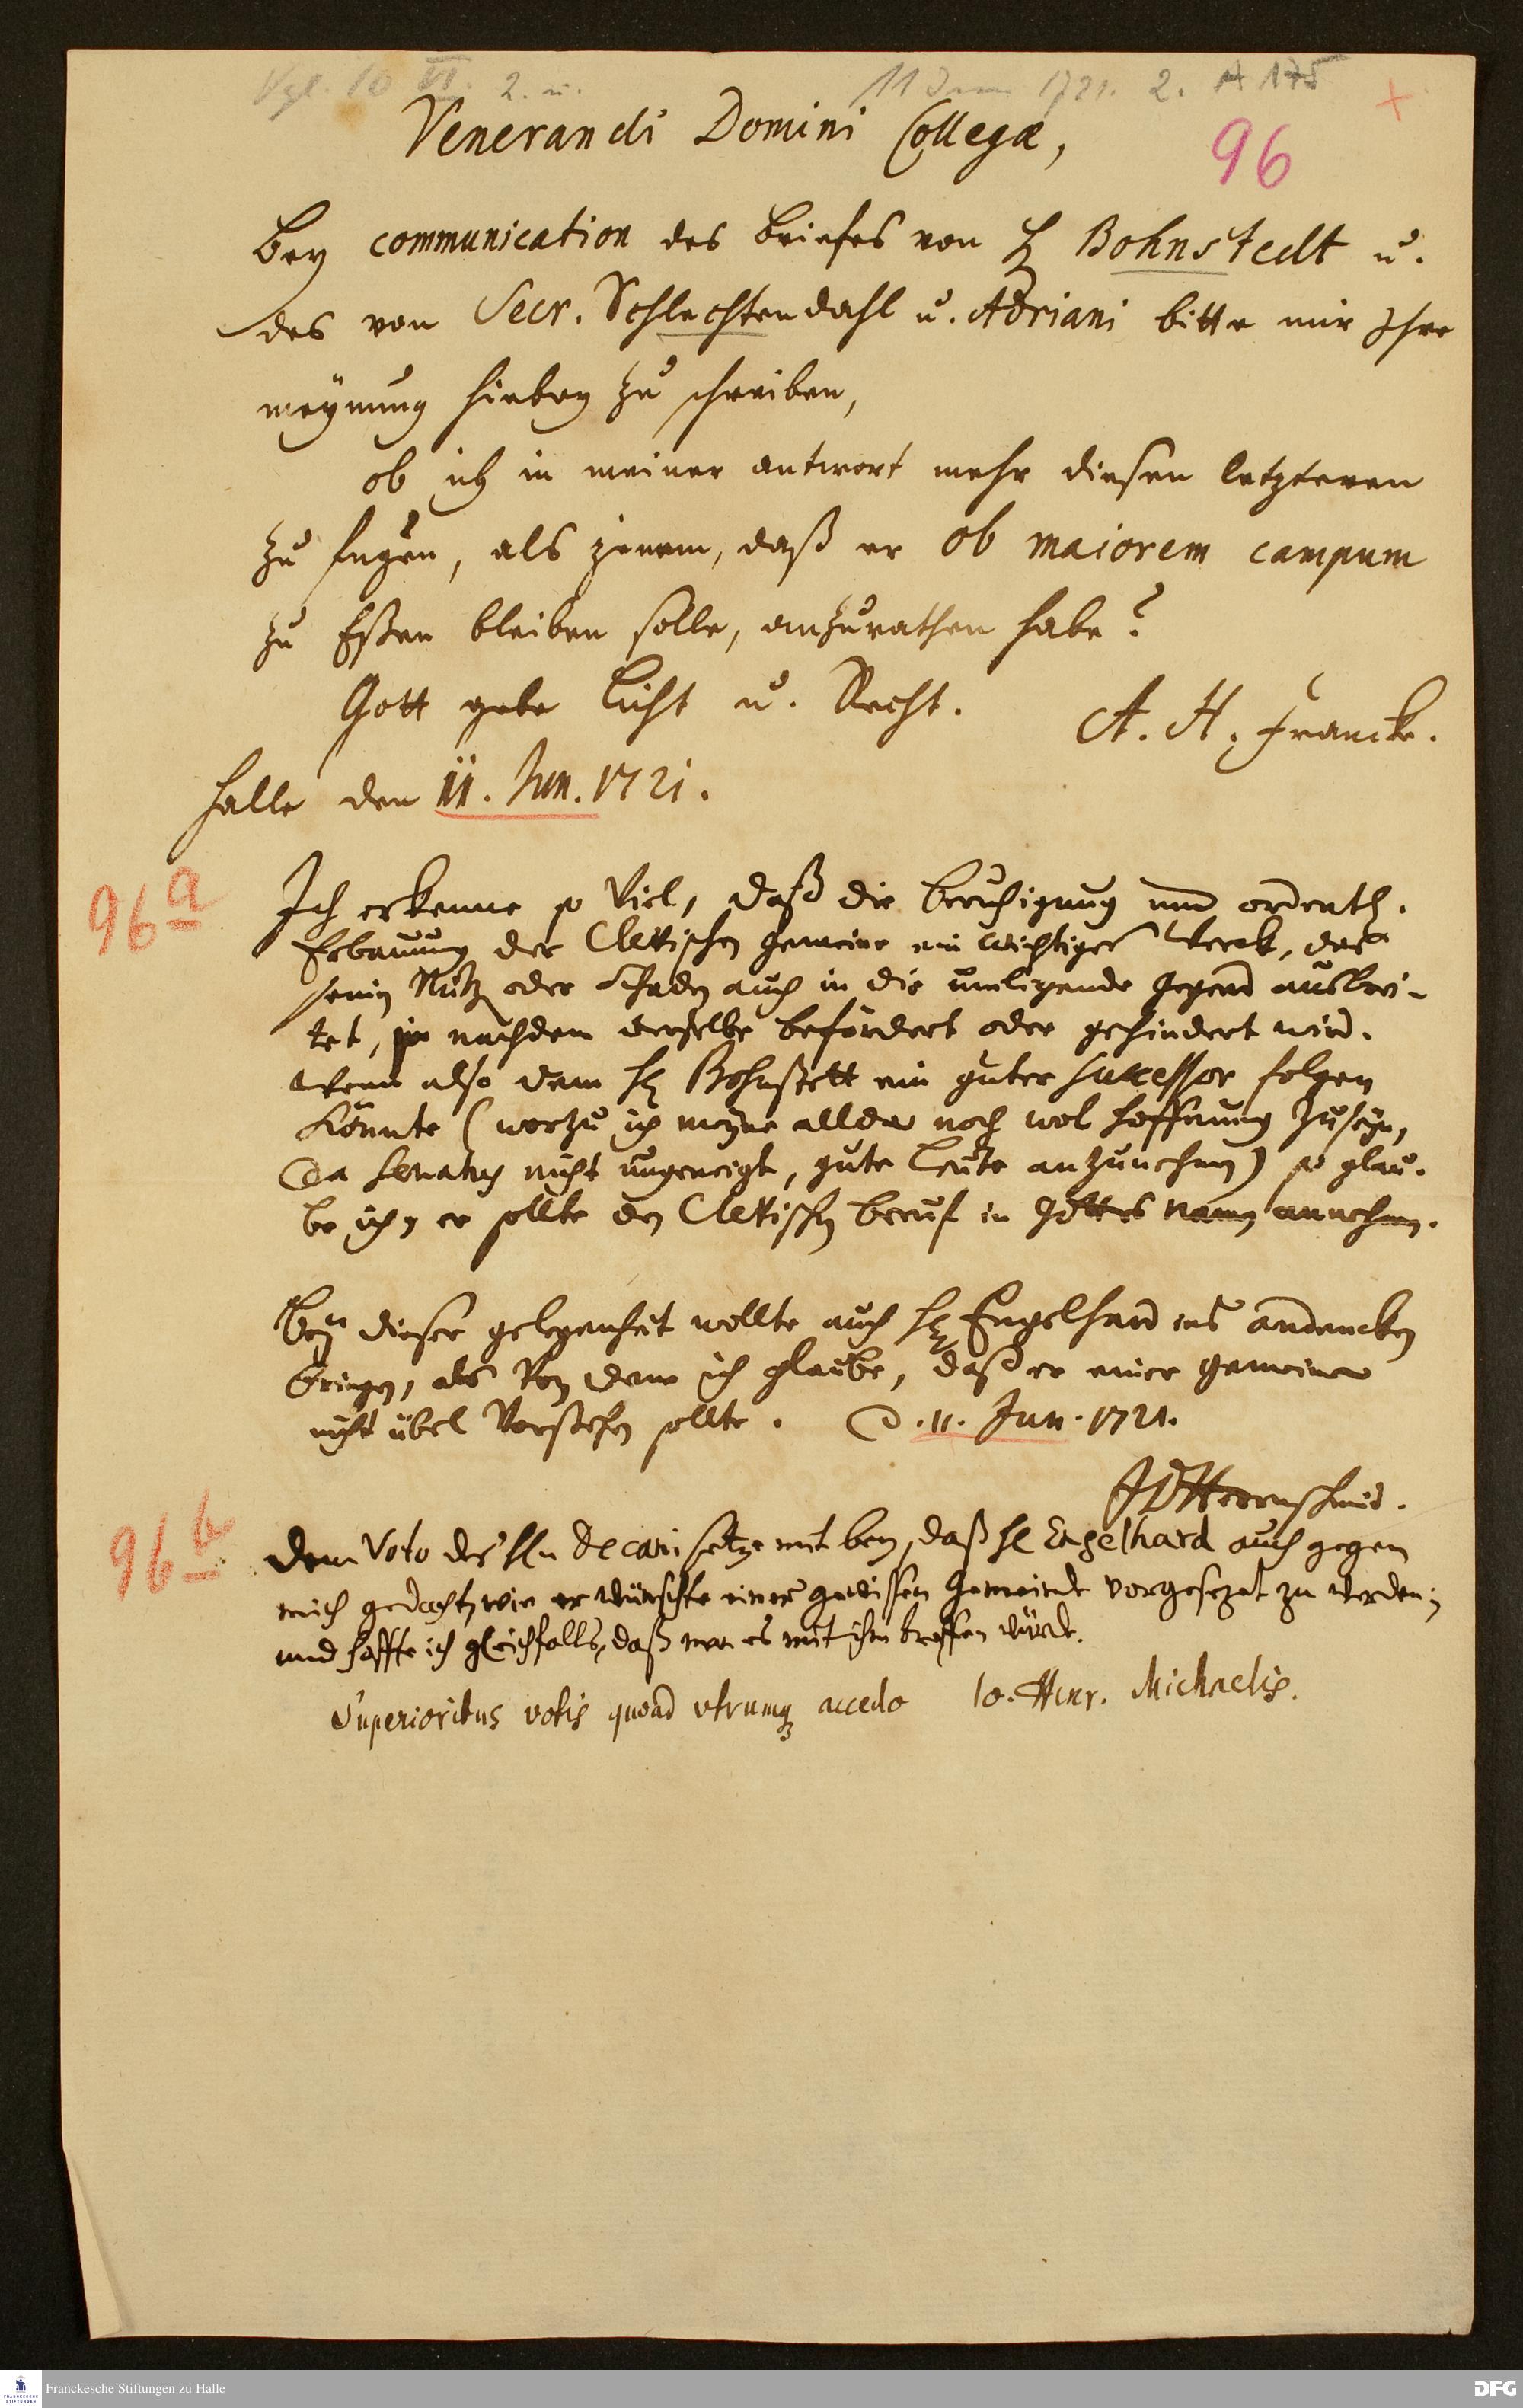 Vgl. 10 VI. 2. u. 11 Jun 1721. 2. A 175
Venerandi Domini Collegæ,
96
Bey communication des briefes von H Bohnstedt u.
des von Secr. Schlechtendahl u. Adriani bitte mir Ihre
meynung hiebey zu schreiben,
ob ich in meiner antwort mehr diesen letzteren
zu fugen, als jenem, daß er ob maiorem campum
zu Eßen bleiben solle, anzurathen habe?
Gott gebe Licht u. Recht.
A. H. Francke.
Halle den 11. Jun. 1721.
96a
Ich erkenne so viel, daß die beruhigung und ordentl.
Erbauung der Clevischen Gemeine ein wichtiges Werck, das
seinen Nutz oder Schaden auch in die umligende Gegend ausbrei-
tet, je nachdem derselbe befördert oder gehindert wird.
Wenn also dem H Bohnstett ein guter Successor folgen
könnte (worzu ich meyne allda noch wol hoffnung zu seyn,
da Senatus nicht ungeneigt, gute Leute anzunehmen) so glau-
be ich, er sollte den Clevischen beruf in Gottes Namen annehmen.
Bey dieser gelegenheit wollte auch H Engelhard ins andencken
bringen, als von dem ich glaube, daß er einer gemeine
nicht übel vorstehen sollte. d. 11. Jun. 1721.
JDHerrnschmid.
96b
Dem Voto des Hn Decani setze mit bey, daß H Engelhard auch gegen
mich gedacht, wie er wünschte einer gewissen Gemeinde vorgesezet zu werden;
und hoffte ich gleichfalls, daß man es mit ihm treffen würde.
Superioribus votis quoad utrumq accedo Io. Henr. Michaelis.
Franckesche Stiftungen zu Halle
DFG